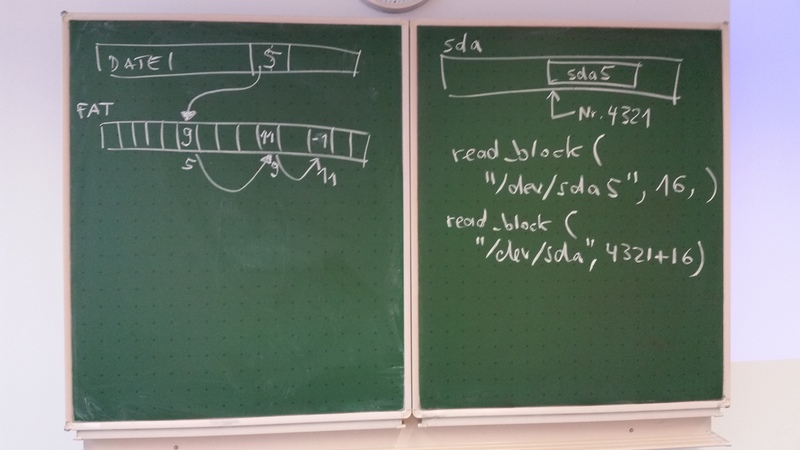 DATEI 5
FAT
9 11 -1
5 9 11
sda
sda5
Nr. 4321
read_block (
"/dev/sda5", 16, )
read_block (
"/dev/sda", 4321+16)